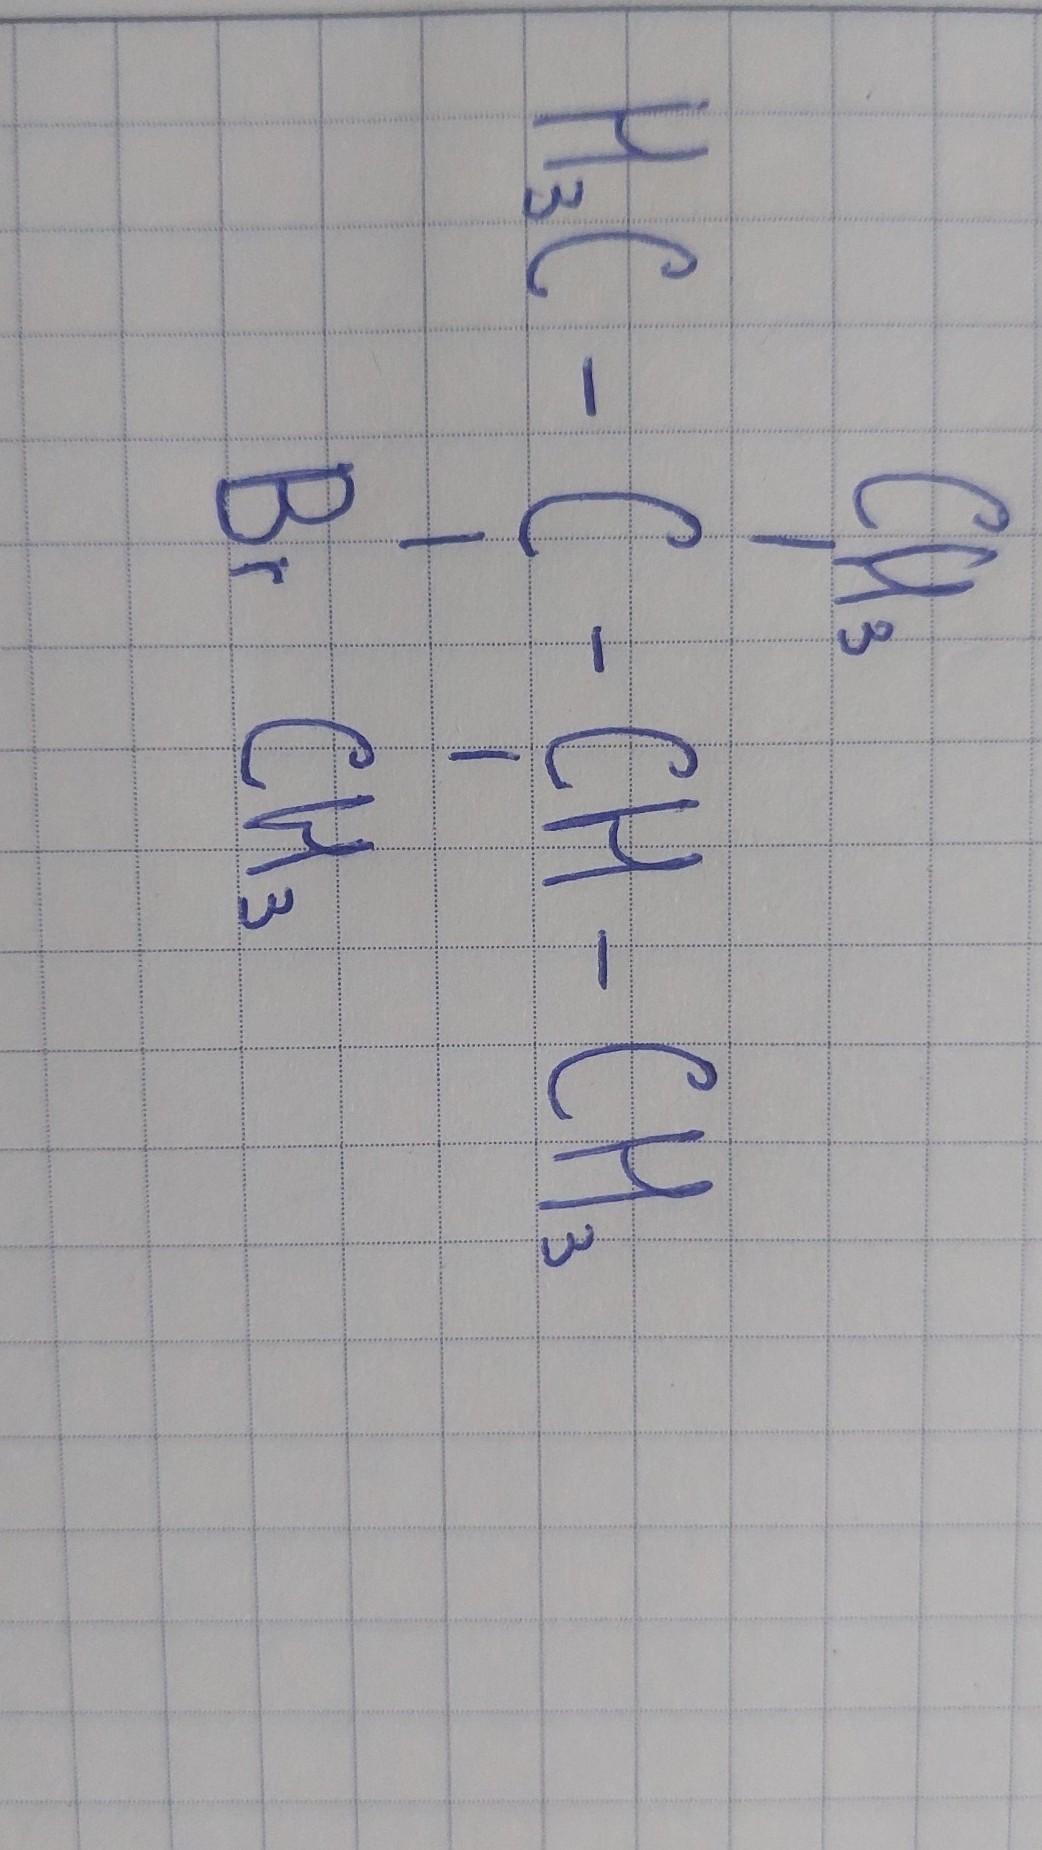 CH₃
H₃C - C - CH - CH₃
Br CH₃